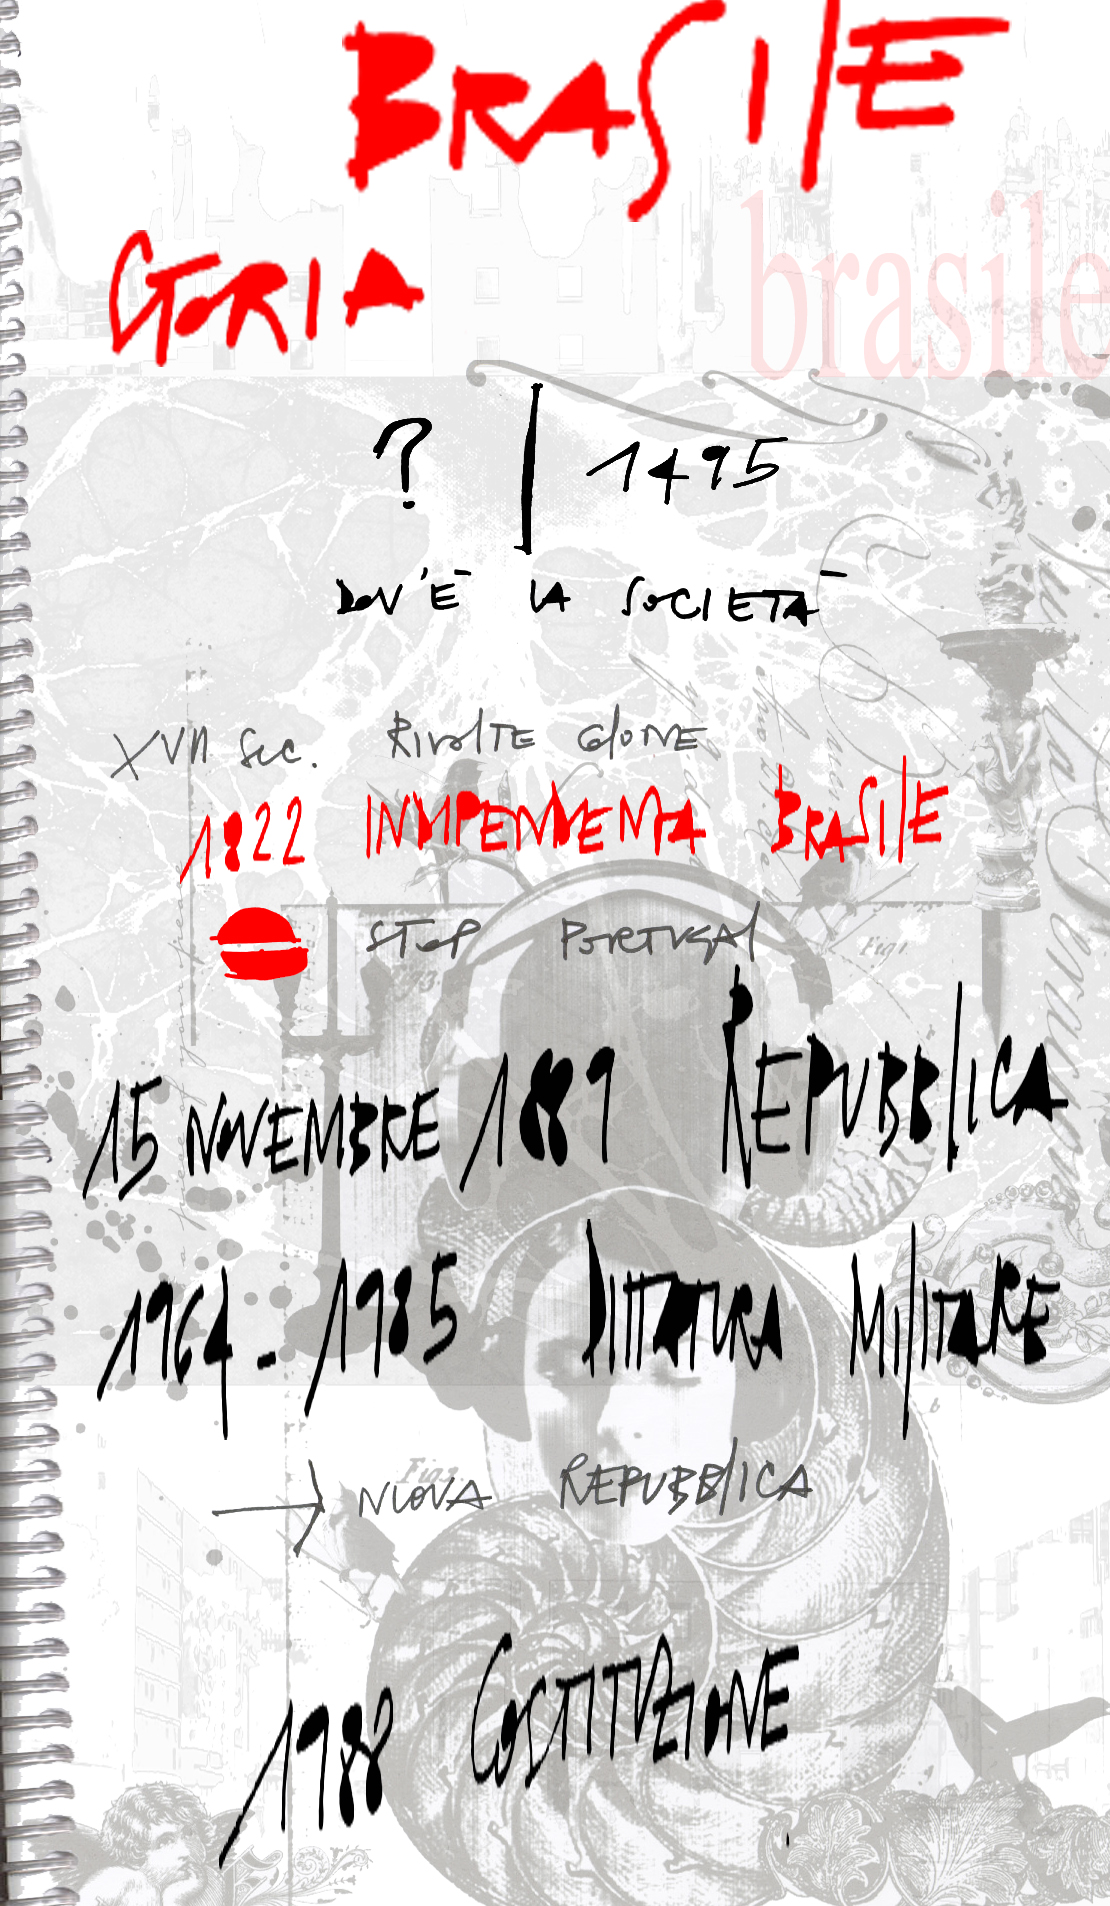 BRASILE
brasile
STORIA
? | 1495
DOV'È LA SOCIETÀ
XVII SEC. RIVOLTE COLONE
1822 INDIPENDENZA BRASILE
STOP PORTUGAL
Fig 1
15 NOVEMBRE 1889 REPUBBLICA
1964 - 1985 DITTATURA MILITARE
→ NUOVA REPUBBLICA
1988 COSTITUZIONE